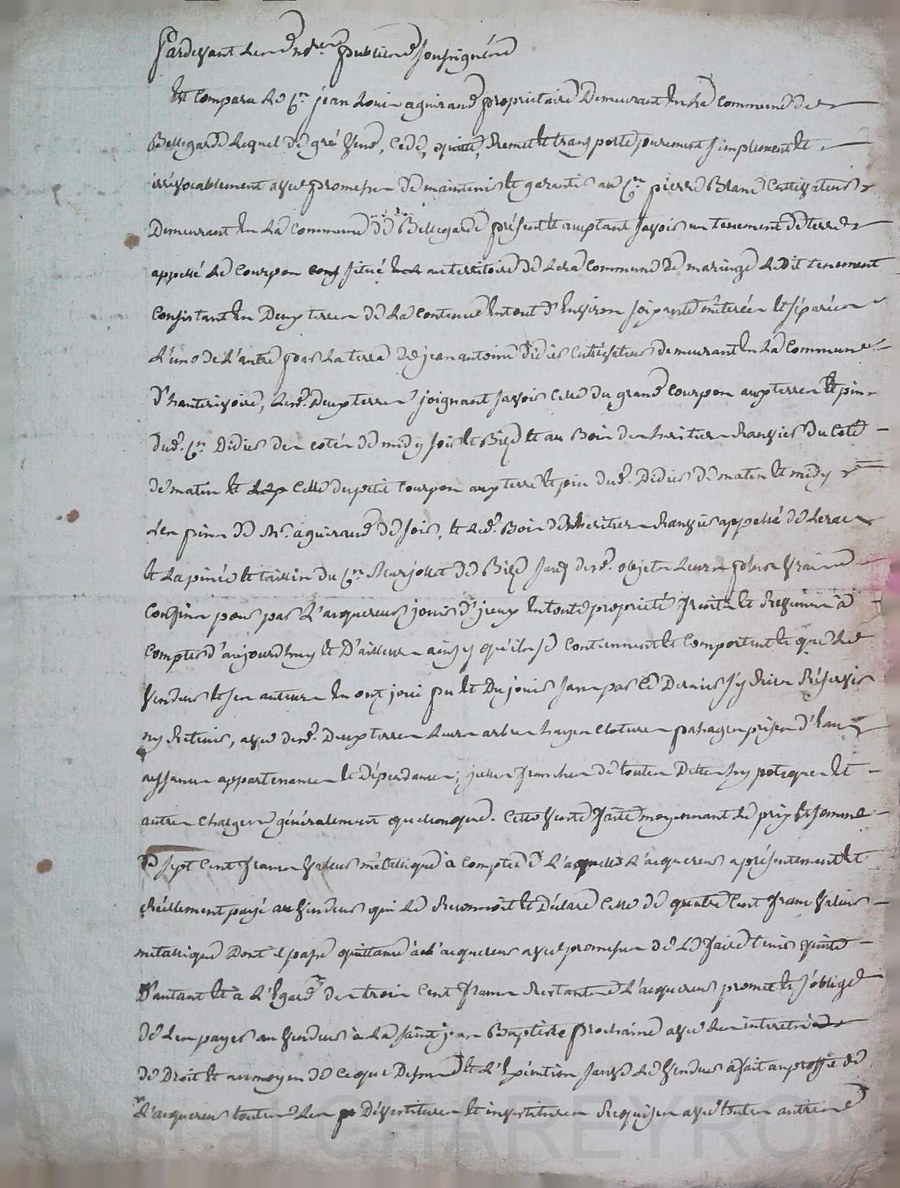 Pardevant les nres publics soussignés
Est comparu le Cen jean Louis aguiraud propriétaire demeurant en la commune de
Bellegarde lequel de gré vend, cede, quitte, remet et transporte purement simplement et
irrévocablement avec promesse de maintenir et garantir au Cen pierre Blanc Cultivateur
Demeurant en La Commune de Bellegarde présent et acceptant savoir un tenement de terre
appellé Le Courpon situé au territoire de la commune de maringe Le dit tenement
Consistant en Deux terres de La contenue en tout d'Environ soixante métérées et séparées
L'une de L'autre par La terre de jean antoine Didier Cultivateur demeurant en La Commune
D'hauterivoire, Lesd. Deux terres joignant savoir celle du grand Courpon aux terres et pin
dud. Cen Didier des cotés de midy soir et Bize et au Bois des heritiers du Coté
de matin et celle du petit Courpon aux terre et pin dud. Didier de matin et midy
Les pins de Mr. aguiraud de soir, et Led. Bois des heritiers appellé de
et La pinée et taillis du Cen de Bize sauf desd. objets Leurs plus vrais
Confins pour par L'acquereur jouir d'iceux en toute propriété fruits et Revenus à
Compter d'aujourd'huy et D'ailleurs ainsy qu'ils se contiennent et Comportent et que Le
Vendeur et ses auteurs en ont joui pu et Du jouir sans par ce Dernier s'y Rien Réserver
ny Retenir, avec desd. Deux terres Leurs arbres hayes clotures passages prises d'Eau
aysances appartenances et dépendances; jceux franches de toutes Dettes hypoteques et
autres charges généralement quelconque. Cette Vente faite moyennant Le prix et somme
de sept Cent francs valeur métallique à compte de Laquelle L'acquereur a présentement et
réellement payé au vendeur qui Le Reconnoit et Déclare Celle de quatre Cent francs valeur
métallique Dont il passe quittance à L'acquereur avec promesse de Le faire tenir quitte
D'autant et à L'égard des trois Cent francs Restant L'acquereur promet et s'oblige
de Les payer au vendeur à La saint jean Baptiste prochaine avec Les interets
de Droit et au moyen de ce que Dessus et L'Exécution sauve Le vendeur a fait au profit de
L'acquereur toutes Les Dévestitures et investitures Requises avec toutes autres
Pascal CHAREYRON